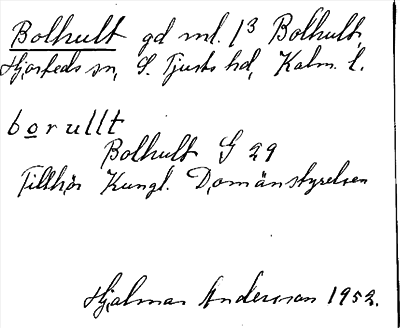 Bolhult gd ml. 1³ Bolhult,
Hjorteds sn, S. Tjusts hd, Kalm. l.
borullt
Bolhult G 29
Tillhör Kungl. Domänstyrelsen
Hjalmar Andersson 1952.